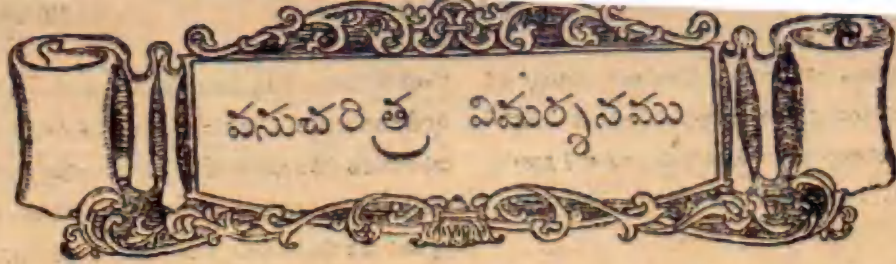 వసుచరిత్ర విమర్శనము